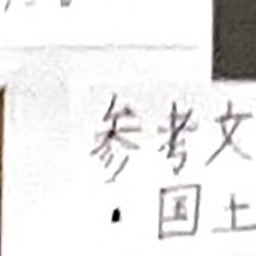 参考文
・国土